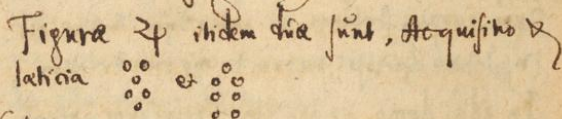 Figuræ ♃ itidem duæ sunt, Acquisitio &
læticia et